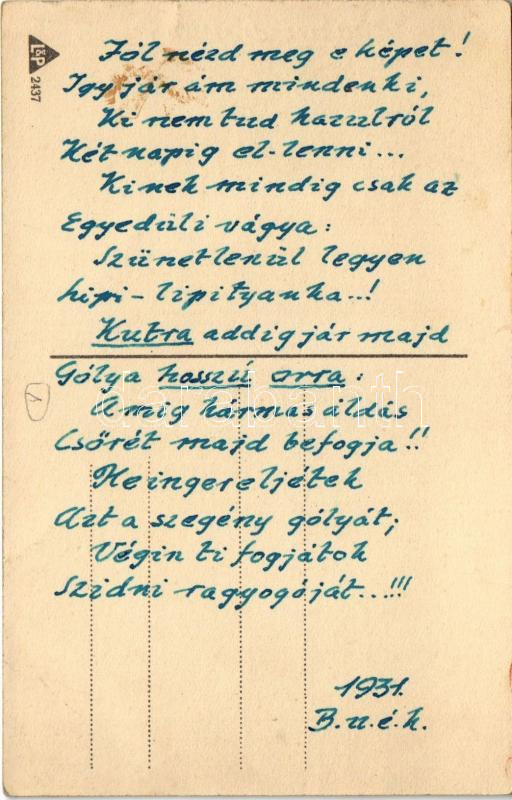 Jól nézd meg e képet!
Igy jár ám mindenki,
Ki nem tud hazulról
Két napig el-lenni...
Kinek mindig csak az
Egyedüli vágya:
Szünetlenül legyen
hipi-lipityanka..!
Kutra addig jár majd
Gólya hosszú orra:
Amig hármas áldás
Csőrét majd befogja!!
Ne ingereljétek
Azt a szegény gólyát;
Végin ti fogjátok
Szidni ragyogóját...!!!
1931.
B.u.é.k.
L&P
2437
1
darabanth